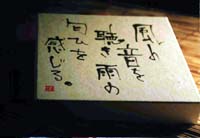 風の音を
聴き雨の
匂ひを
感じる。